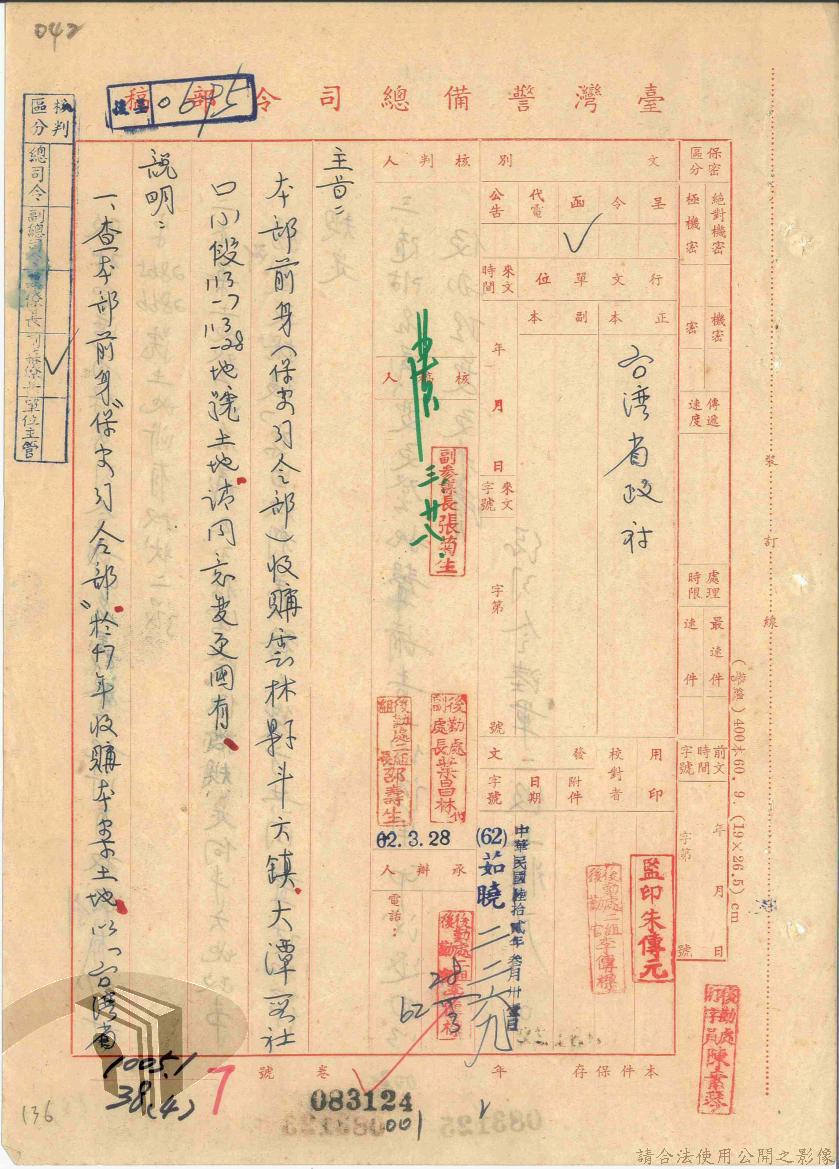 042
臺灣警備總司令部稿
0695
核判區分
總司令
副總司令
參謀長
副參謀長
單位主管
保密區分
絕對機密
極機密
機密
密
傳遞速度
處理時限
最速件
速件
前文時間字號
年 月 日
字第 號
文別
呈
令
函
代電
公告
行文單位
正本
副本
台灣省政府
來文時間
年 月 日
來文字號
字第 號
用印
校對者
發文
附件
日期
字號
監印朱傳元
中華民國陸拾貳年叁月卅壹日
(62)茹曉
二二六九
核判人
核稿人
三廿八
副參謀長張菊生
後勤處副處長葉昌林
後勤處二組組長邵壽生
62.3.28
承辦人
電話:
62 28/3
主旨:
本部前身(保安司令部)收購雲林縣斗六鎮大潭段社
口小段113-7 113-28地號土地請同意變更國有。
說明:
一、查本部前身"保安司令部"於47年收購本案土地以"台灣省
本件保存 年
卷 號
083124
001
7
1005.1
38(4)
136
裝訂線
400本60.9.(19×26.5)cm
請合法使用公開之影像